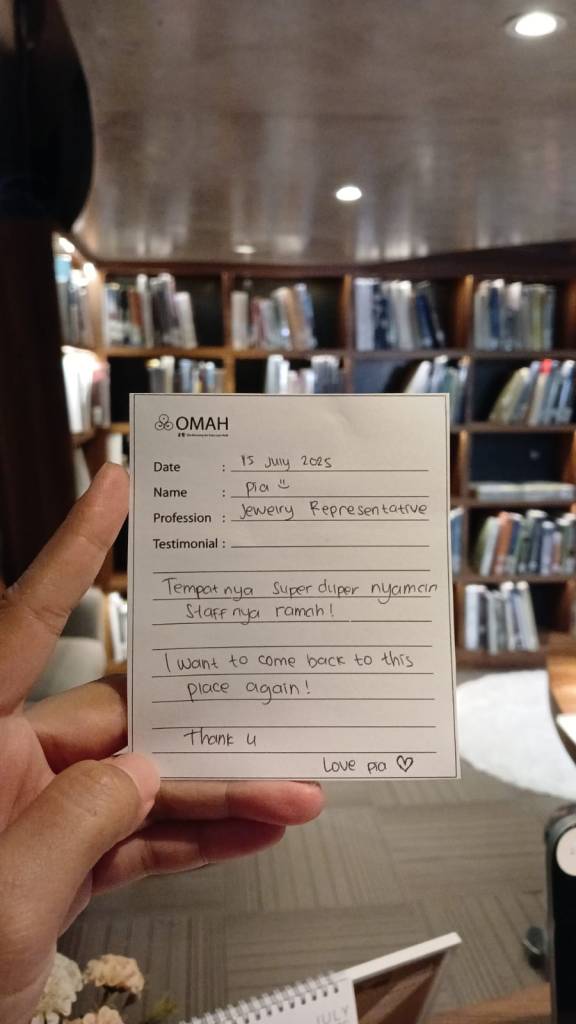 OMAH
Date : 15 July 2025
Name : Pia
Profession : Jewelry Representative
Testimonial :
Tempat nya super duper nyaman
Staff nya ramah!
I want to come back to this
place again!
Thank u
Love pia
JULY